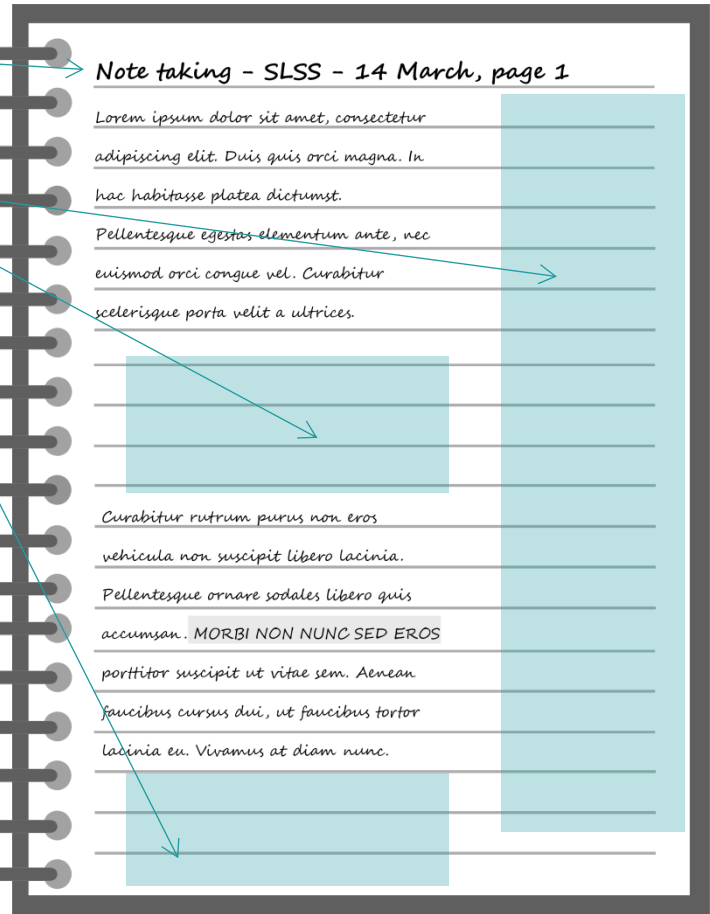 Note taking - SLSS - 14 March, page 1
Lorem ipsum dolor sit amet, consectetur
adipiscing elit. Duis quis orci magna. In
hac habitasse platea dictumst.
Pellentesque egestas elementum ante, nec
euismod orci congue vel. Curabitur
scelerisque porta velit a ultrices.
Curabitur rutrum purus non eros
vehicula non suscipit libero lacinia.
Pellentesque ornare sodales libero quis
accumsan. MORBI NON NUNC SED EROS
porttitor suscipit ut vitae sem. Aenean
faucibus cursus dui, ut faucibus tortor
lacinia eu. Vivamus at diam nunc.